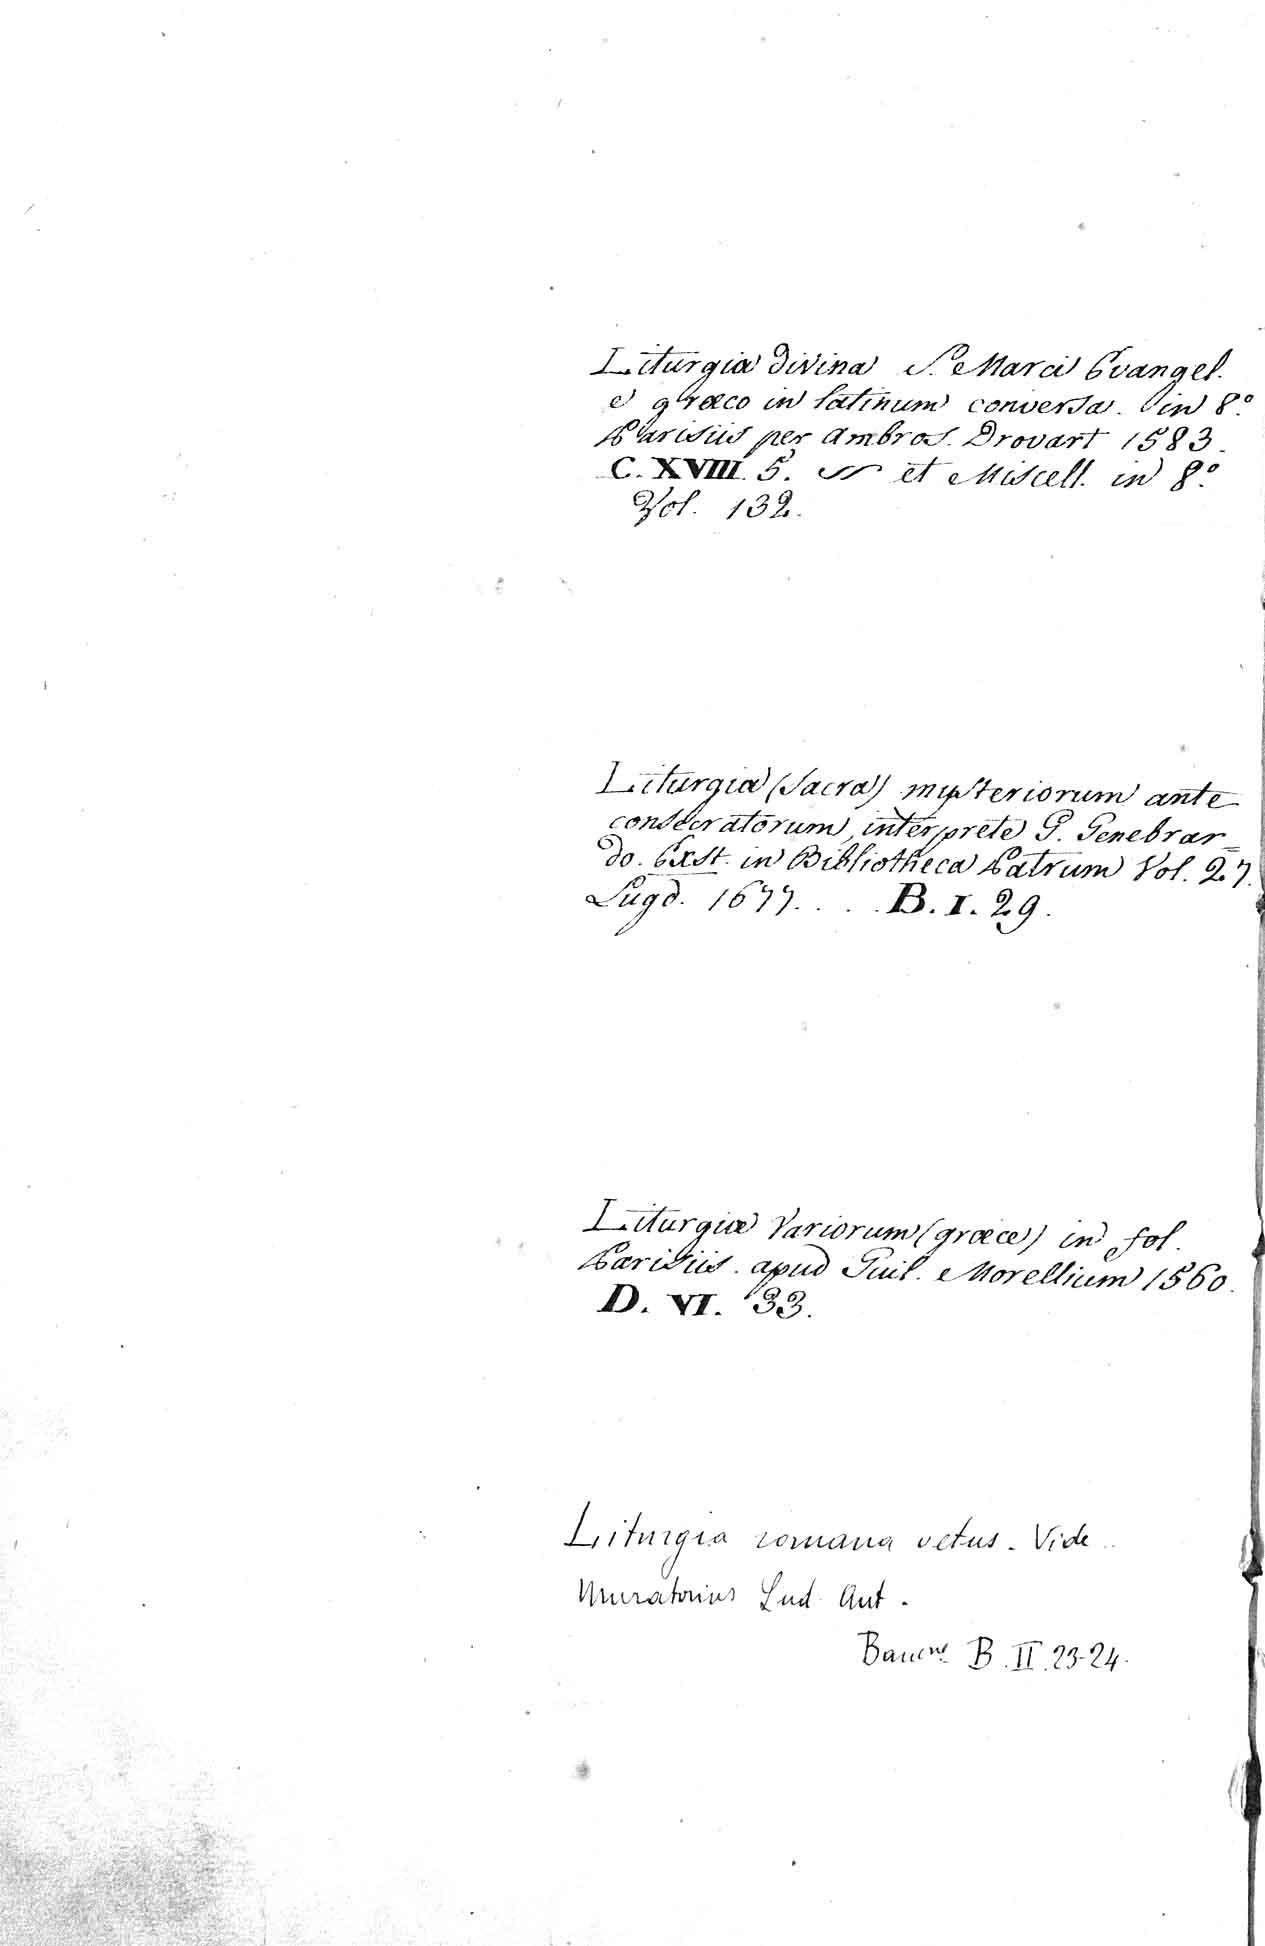 Liturgia divina S. Marci Evangel.
e græco in latinum conversa. in 8.°
Parisiis per Ambros. Drovart 1583.
C. XVIII. 5. et Miscell. in 8.°
Vol. 132.
Liturgia (Sacra) mysteriorum ante
consecratorum, interprete G. Genebrar=
do. Exst. in Bibliotheca Patrum Vol. 27.
Lugd. 1677. . . . B. I. 29.
Liturgiæ Variorum (græce) in fol.
Parisiis. apud Guil. Morellium 1560.
D. VI. 33.
Liturgia romana vetus. Vide
Muratorius Lud. Ant.
B. II. 23-24.